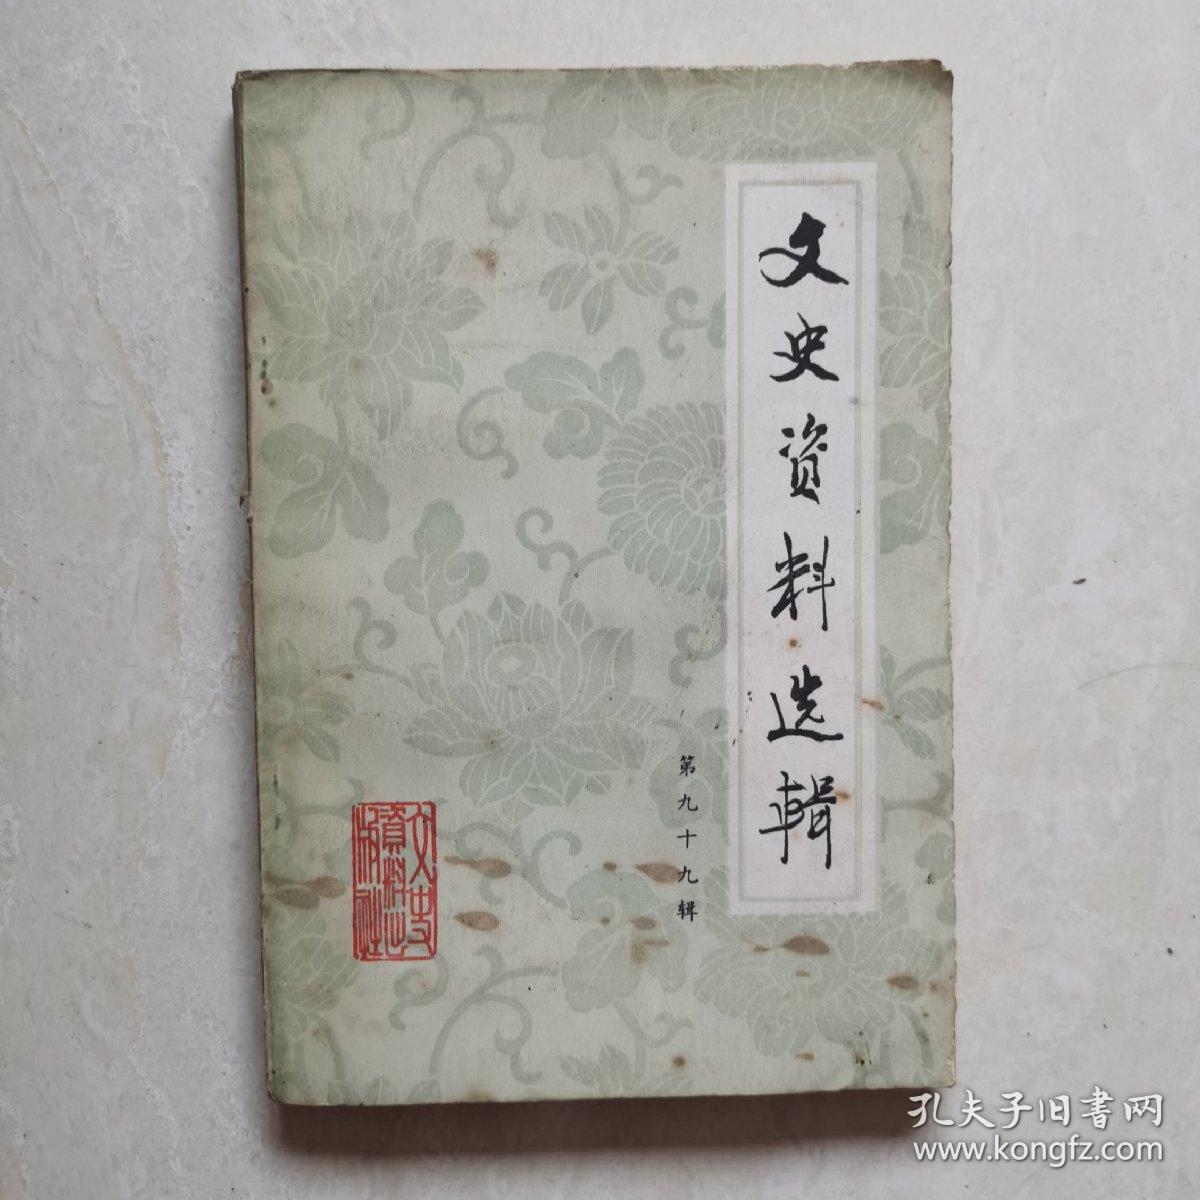 文史资料选辑
第九十九辑
文史
資料出
版社
孔夫子旧書网
www.kongfz.com